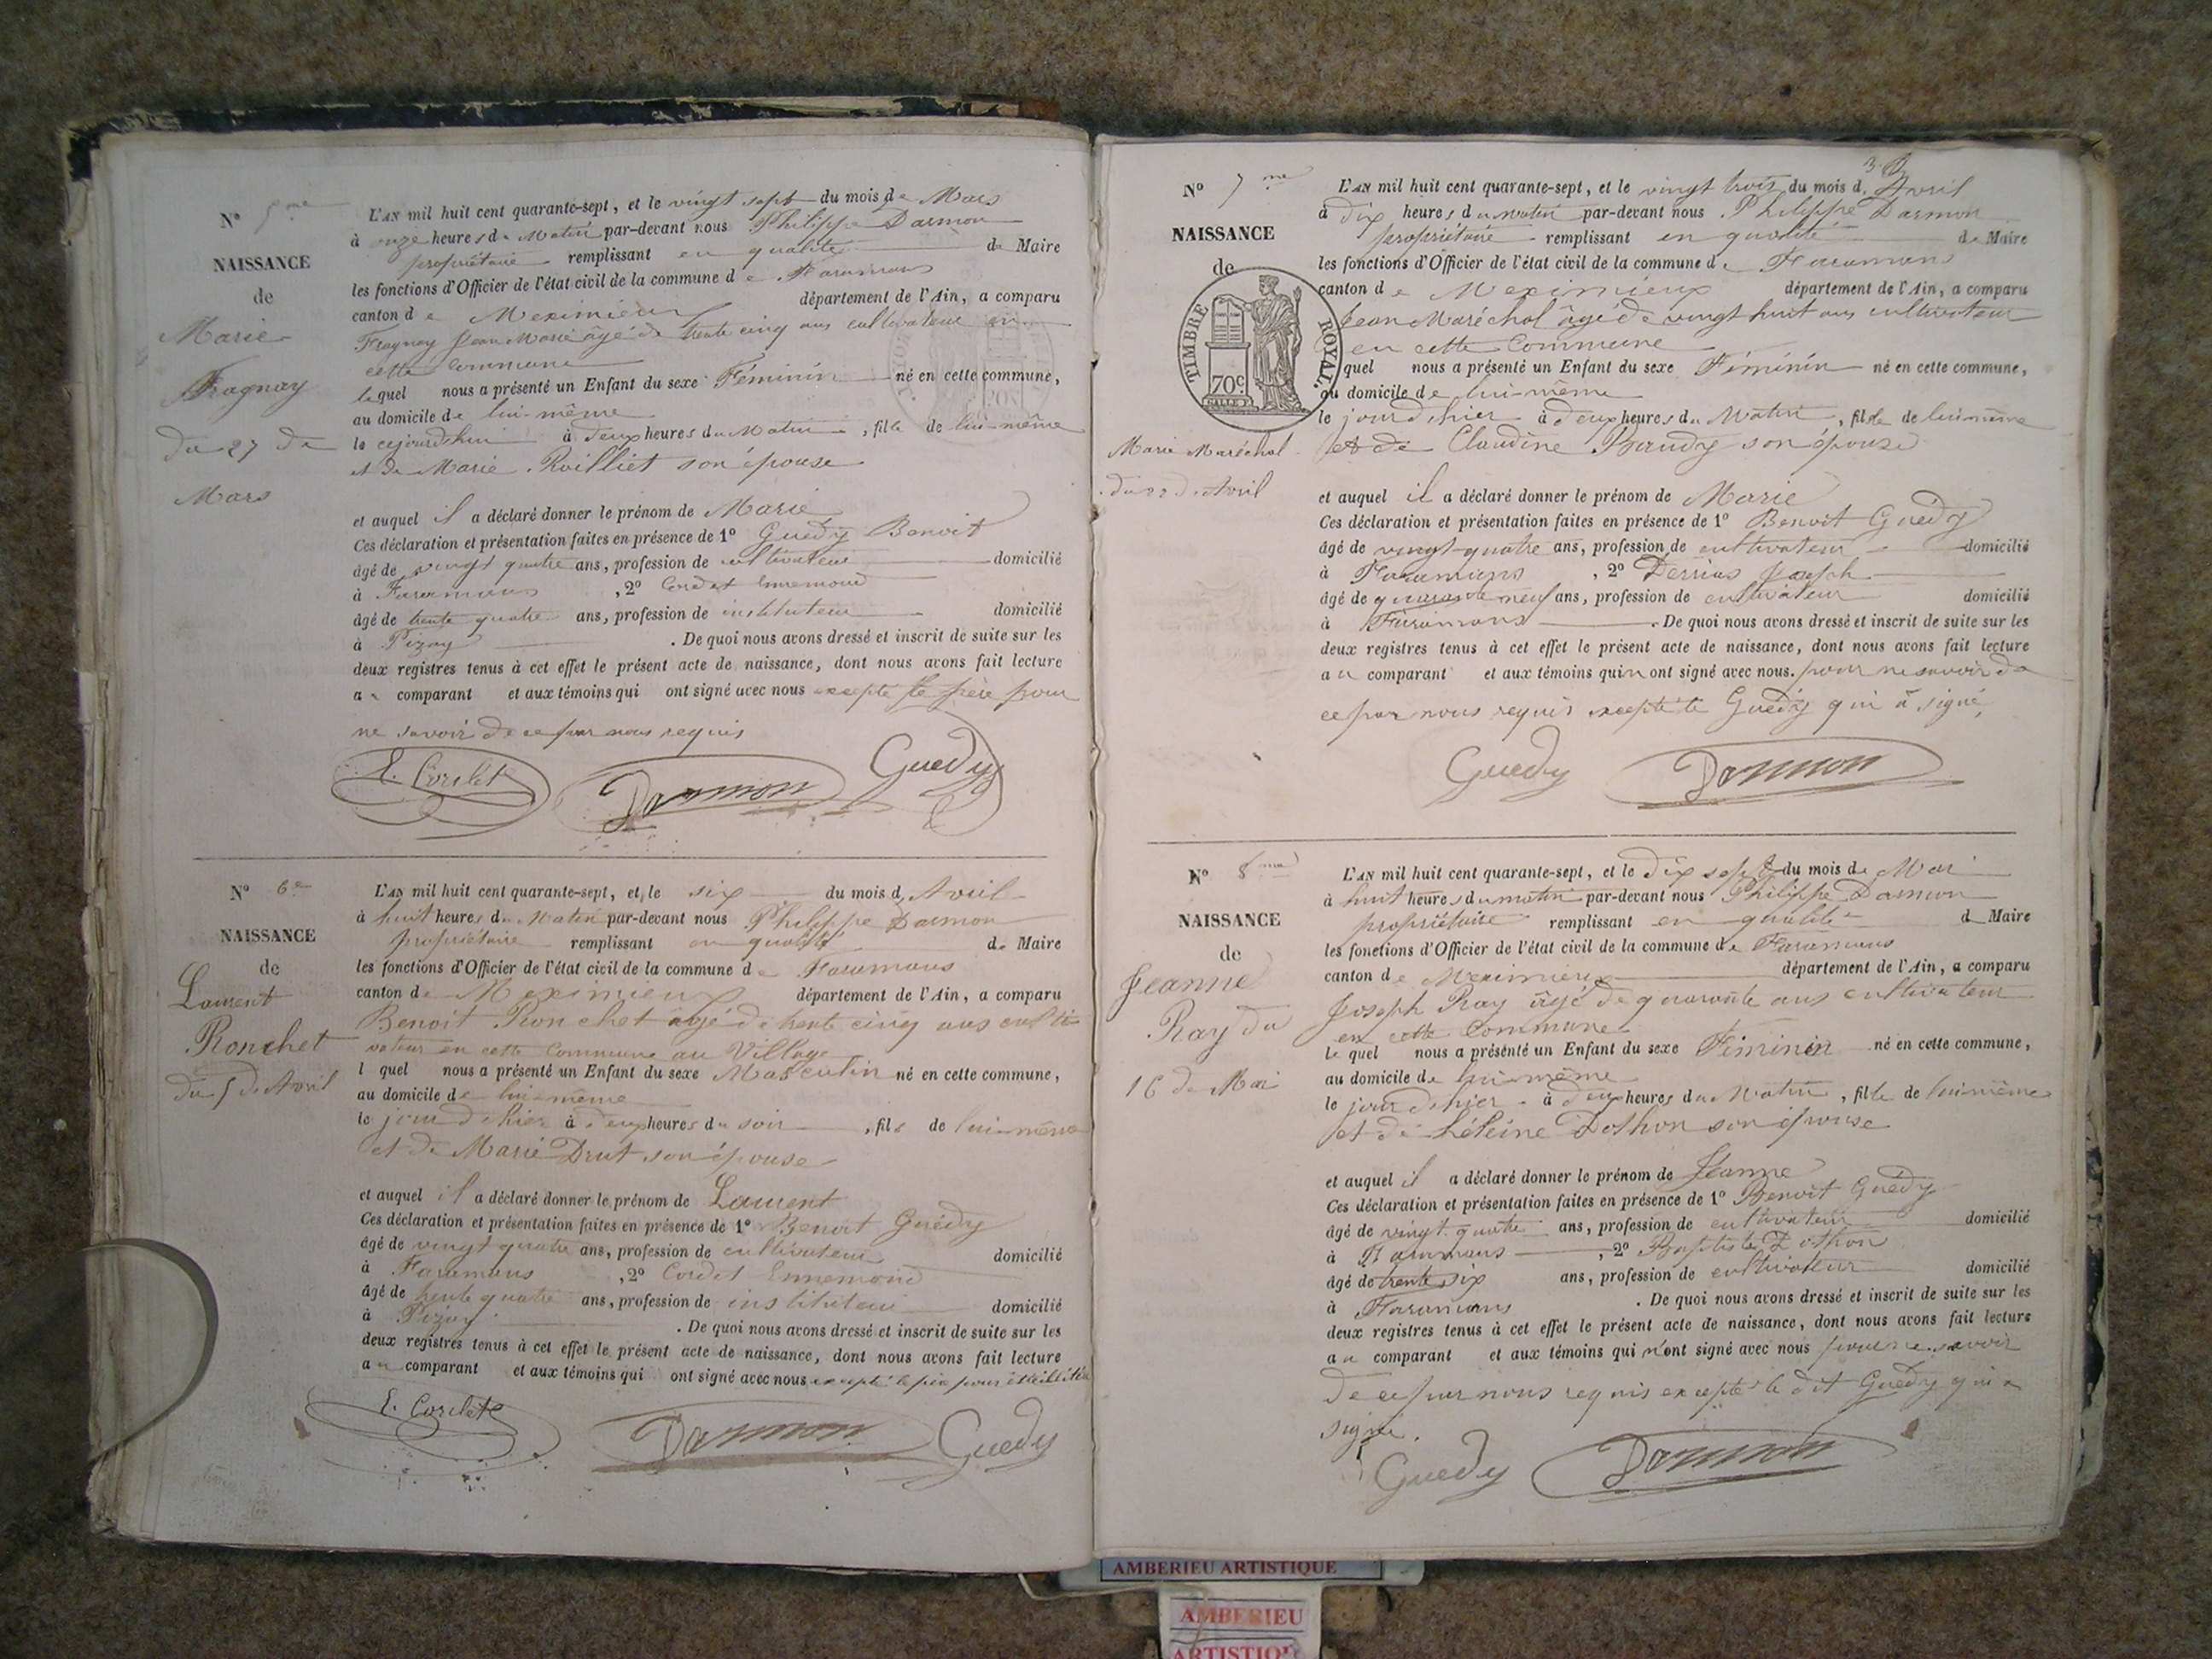 N° 5me
NAISSANCE
de
Marie
Fragnay
du 27 de
Mars
L'AN mil huit cent quarante-sept, et le vingt sept du mois de Mars
à onze heures du Matin par-devant nous Philippe Darmon
propriétaire remplissant en qualité de Maire
les fonctions d'Officier de l'état civil de la commune de Faramans
canton de Meximieux département de l'Ain, a comparu
Fragnay Jean Marie âgé de trente cinq ans cultivateur en
cette commune
lequel nous a présenté un Enfant du sexe Féminin né en cette commune,
au domicile de lui-même
le cejourdhui à deux heures du Matin, fille de lui-même
et de Marie Roilliet son épouse
et auquel il a déclaré donner le prénom de Marie
Ces déclaration et présentation faites en présence de 1° Guedy Benoit
âgé de vingt quatre ans, profession de cultivateur domicilié
à Faramans, 2° Cordet Ennemond
âgé de trente quatre ans, profession de instituteur domicilié
à Pizay. De quoi nous avons dressé et inscrit de suite sur les
deux registres tenus à cet effet le présent acte de naissance, dont nous avons fait lecture
au comparant et aux témoins qui ont signé avec nous excepté le père pour
ne savoir de ce par nous requis
E. Cordet Darmon Guedy
N° 6e
NAISSANCE
de
Laurent
Ronchet
du 5 de Avril
L'AN mil huit cent quarante-sept, et le six du mois d'Avril
à huit heures du Matin par-devant nous Philippe Darmon
propriétaire remplissant en qualité de Maire
les fonctions d'Officier de l'état civil de la commune de Faramans
canton de Meximieux département de l'Ain, a comparu
Benoit Ronchet âgé de trente cinq ans culti
vateur en cette Commune au Village
l quel nous a présenté un Enfant du sexe Masculin né en cette commune,
au domicile de lui-même
le jour d'hier à deux heures du soir, fils de lui-même
et de Marie Drut son épouse
et auquel il a déclaré donner le prénom de Laurent
Ces déclaration et présentation faites en présence de 1° Benoit Guédy
âgé de vingt quatre ans, profession de cultivateur domicilié
à Faramans, 2° Cordet Ennemond
âgé de trente quatre ans, profession de instituteur domicilié
à Pizay. De quoi nous avons dressé et inscrit de suite sur les
deux registres tenus à cet effet le présent acte de naissance, dont nous avons fait lecture
au comparant et aux témoins qui ont signé avec nous excepté le père pour
E. Cordet Darmon Guedy
3
N° 7me
NAISSANCE
de
TIMBRE ROYAL.
70c
Marie Maréchal
du 22 d'Avril
L'AN mil huit cent quarante-sept, et le vingt trois du mois d'Avril
à dix heures du matin par-devant nous Philippe Darmon
propriétaire remplissant en qualité de Maire
les fonctions d'Officier de l'état civil de la commune de Faramans
canton de Meximieux département de l'Ain, a comparu
Jean Maréchal âgé de vingt huit ans cultivateur
en cette Commune
quel nous a présenté un Enfant du sexe Féminin né en cette commune,
au domicile de lui-même
le jour d'hier à deux heures du Matin, fille de lui-même
et de Claudine Baudy son épouse
et auquel il a déclaré donner le prénom de Marie
Ces déclaration et présentation faites en présence de 1° Benoit Guédy
âgé de vingt quatre ans, profession de cultivateur domicilié
à Faramans, 2° Joseph
âgé de quarante neuf ans, profession de cultivateur domicilié
à Faramans. De quoi nous avons dressé et inscrit de suite sur les
deux registres tenus à cet effet le présent acte de naissance, dont nous avons fait lecture
au comparant et aux témoins qui n'ont signé avec nous. pour ne savoir de
ce par nous requis excepté le Guédy qui a signé,
Guedy Darmon
N° 8me
NAISSANCE
de
Jeanne
Ray du
16 de Mai
L'AN mil huit cent quarante-sept, et le dix sept du mois de Mai
à huit heures du matin par-devant nous Philippe Darmon
propriétaire remplissant en qualité d Maire
les fonctions d'Officier de l'état civil de la commune de Faramans
canton de Meximieux département de l'Ain, a comparu
Joseph Ray âgé de quarante ans cultivateur
en cette Commune
lequel nous a présénté un Enfant du sexe Féminin né en cette commune,
au domicile de lui-même
le jour d'hier à deux heures du Matin, fille de lui-même
et de Héleine Dothon son épouse
et auquel il a déclaré donner le prénom de Jeanne
Ces déclaration et présentation faites en présence de 1° Benoit Guédy
âgé de vingt quatre ans, profession de cultivateur domicilié
à Faramans, 2° Baptiste Dothon
âgé de trente six ans, profession de cultivateur domicilié
à Faramans. De quoi nous avons dressé et inscrit de suite sur les
deux registres tenus à cet effet le présent acte de naissance, dont nous avons fait lecture
au comparant et aux témoins qui n'ont signé avec nous pour ne savoir
de ce par nous requis excepté le dit Guédy qui a
signé.
Guedy Darmon
AMBERIEU ARTISTIQUE
AMBERIEU
ARTISTIQUE